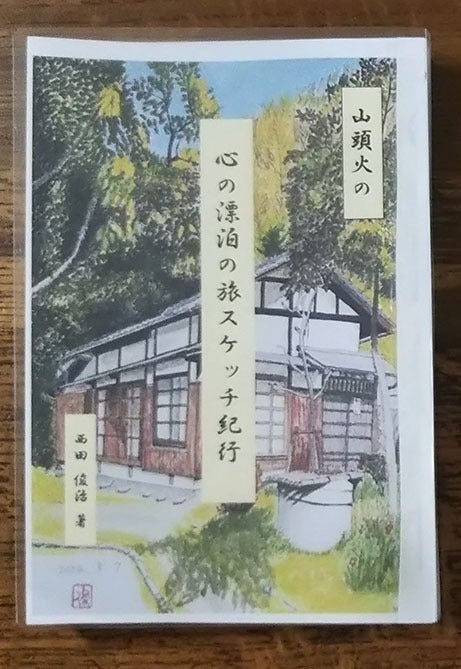 山頭火の
心の漂泊の旅スケッチ紀行
西田 俊浩 著